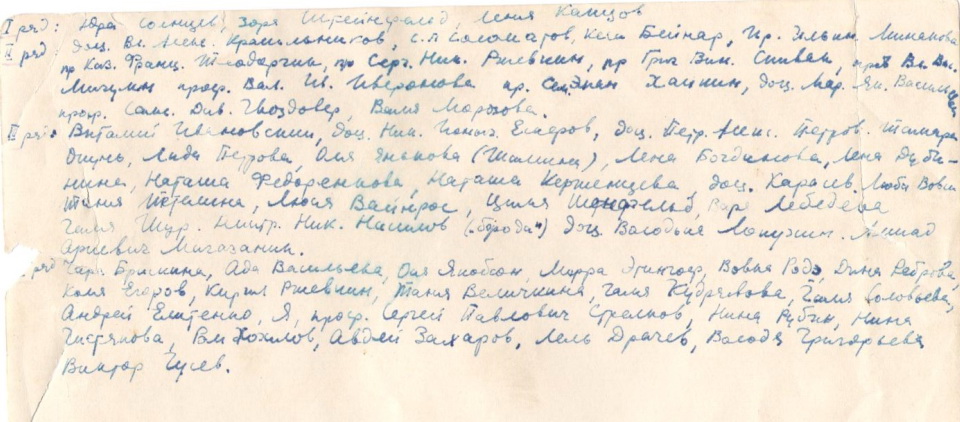 I ряд: Юра Солнцев, Заря Штейнфельд, Леня Канцов
II ряд доц. Вл. Алекс. Красильников, с.п Соломатов, Ким Бейнар, Ир. Ильин. Минакова
пр Каз. Франц. Теодорчик, пр Серг. Ник. Ржевкин, пр Григ Вик. Спивак, преп Вл. Вас.
Мигулин проф. Вал. Ив. Иверонова пр. Хайкин, доц. Мар. Як. Васильева
проф. Самс. Дав. Гвоздовер, Валя Морозова.
ряд: Виталий Ивановский, доц. Ник. Егоров, доц. Петр. Алекс. Петров. Тамара
Лида Петрова, Оля Янькова (Шалина), Лена Богданкова, Лена Дуби-
нина, Наташа Федоренкова, Наташа Керженцева, доц. Карасев. Люба Вовси
Таня Истомина, Люся Вайнрос, Циля Шенфельд, Варя Лебедева
Галя Шур. Ник. Насилов („борода") доц. Володья Лопухин. Ашад
Аркевич Мигазаник.
ряд Брискина, Ада Васильева, Оля Якобсон, Мирра Этингоф, Вовка Родэ, Дина Реброва,
Коля Егоров, Кирил Ржевкин, Таня Величкина, Галя Кудрявова, Галя Соловьева,
Андрей Елитенко, Я, проф. Сергей Павлович Стрелков, Нина Рубин, Нина
Чистякова, Вл Хохлов, Авдей Захаров, Лель Драчев, Володя Григорьев
Виктор Гусев.